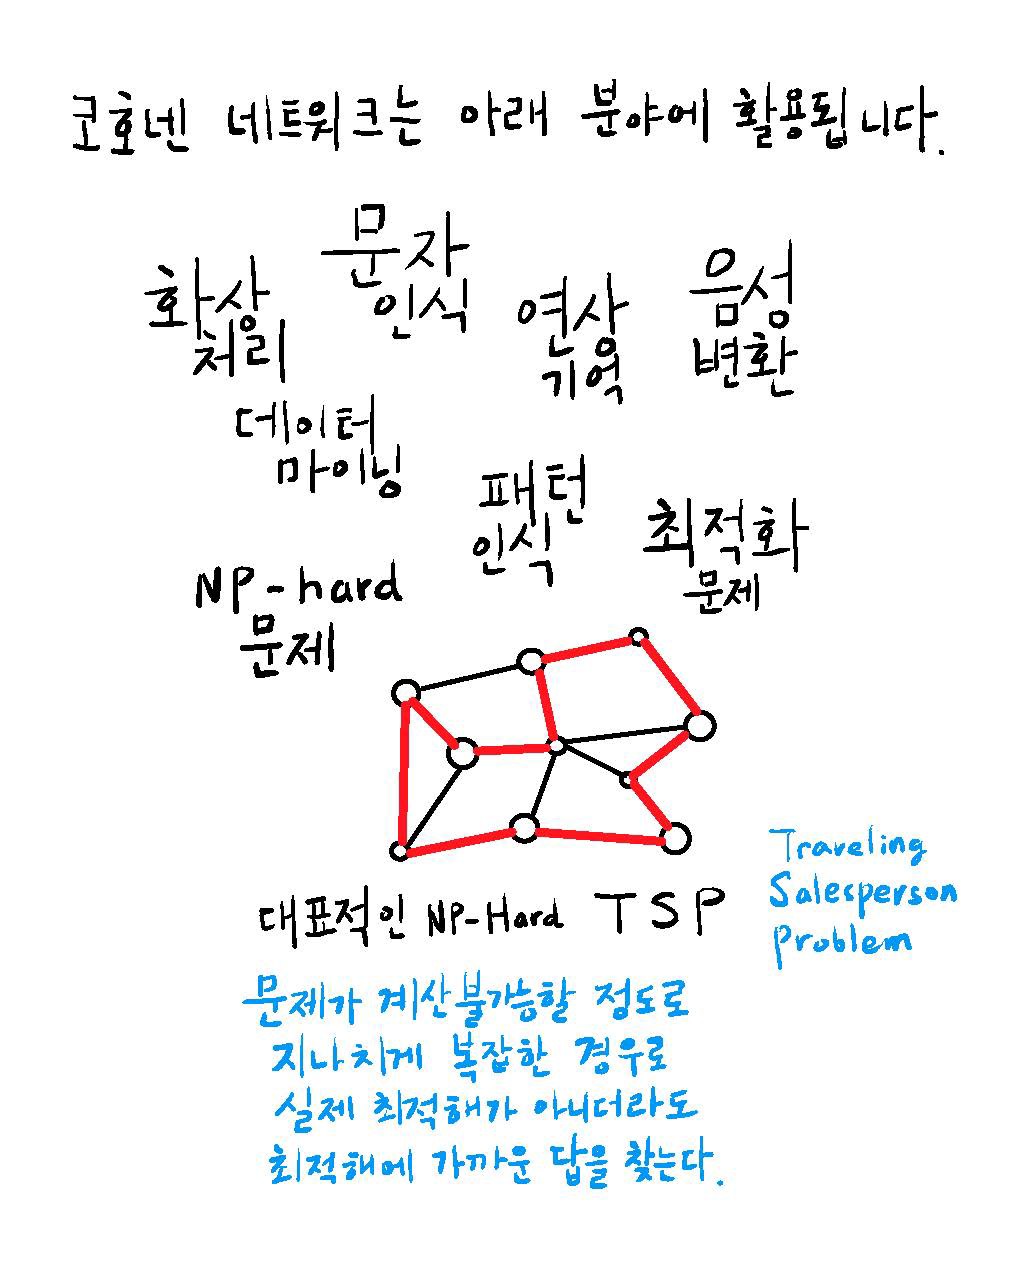 코호넨 네트워크는 아래 분야에 활용됩니다.
문자
인식
화상
처리
연상
기억
음성
변환
데이터
마이닝
패턴
인식
최적화
문제
NP-hard
문제
Traveling
Salesperson
Problem
대표적인 NP-Hard TSP
문제가 계산불가능할 정도로
지나치게 복잡한 경우로
실제 최적해가 아니더라도
최적해에 가까운 답을 찾는다.